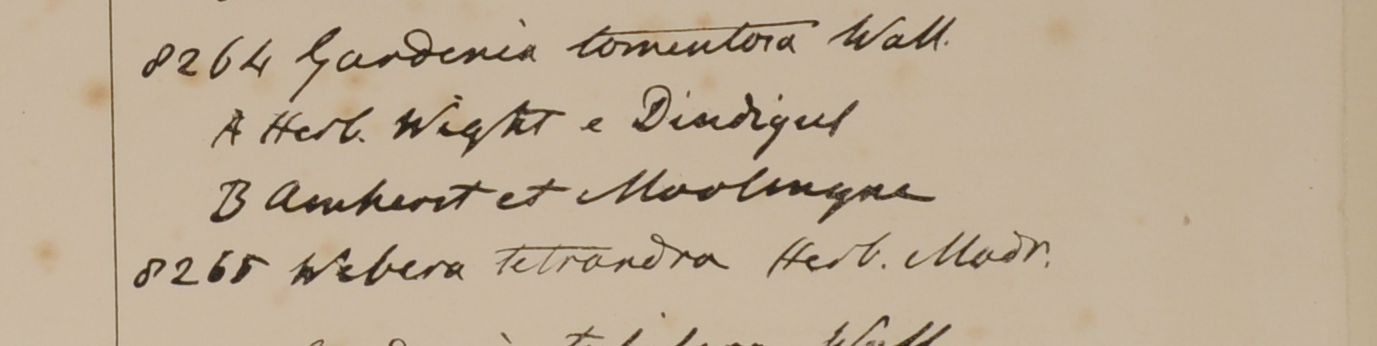 8264 Gardenia tomentosa Wall.
A Herb. Wight e Dindigul
B Amherst et Moolmyne
8265 Webera tetrandra Herb. Madr.
Wall